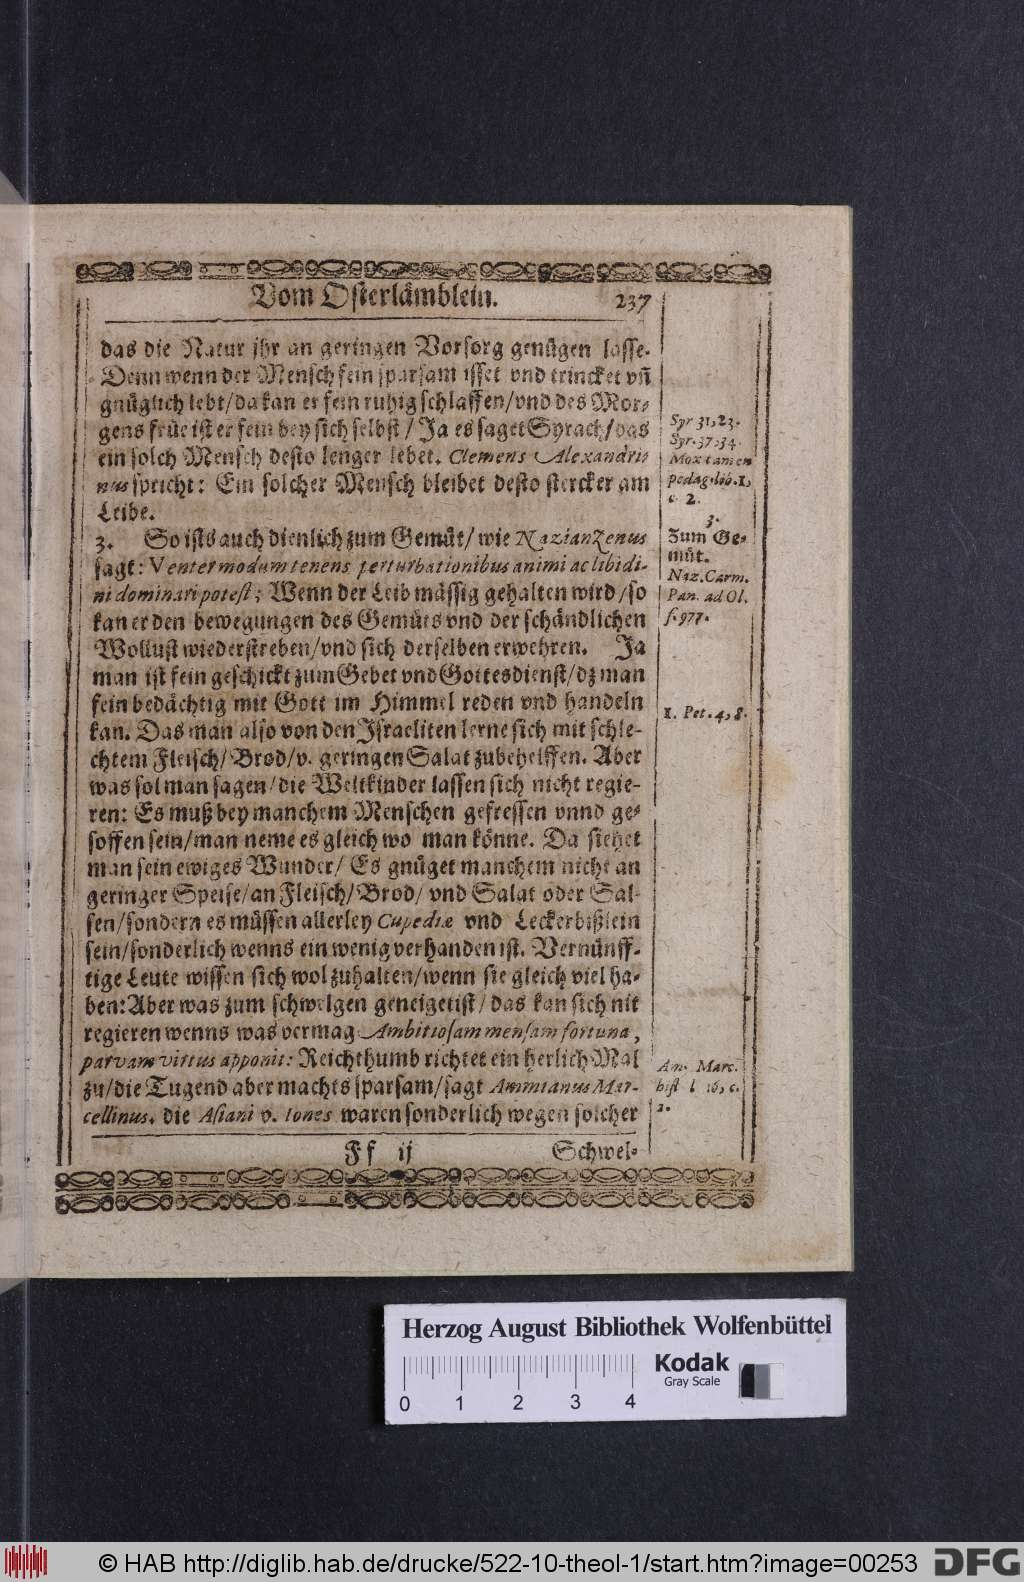 Vom Osterlämblein. 237
das die Natur jhr an geringen Vorsorg genügen lasse.
Denn wenn der Mensch fein sparsam isset vnd trincket vn̄
gnüglich lebt/da kan er fein ruhig schlaffen/vnd des Mor-
gens früe ist er fein bey sich selbst/ Ja es saget Syrach/das
ein solch Mensch desto lenger lebet. Clemens Alexandri-
nus spricht: Ein solcher Mensch bleibet desto stercker am
Leibe.
3. So ists auch dienlich zum Gemüt/ wie Nazianzenus
sagt: Venter modum tenens perturbationibus animi ac libidi-
ni dominari potest; Wenn der Leib mässig gehalten wird/so
kan er den bewegungen des Gemüts vnd der schändlichen
Wollust wiederstreben/vnd sich derselben erwehren. Ja
man ist fein geschickt zum Gebet vnd Gottesdienst/dz man
fein bedächtig mit Gott im Himmel reden vnd handeln
kan. Das man also von den Israeliten lerne sich mit schle-
chtem Fleisch/Brod/v. geringen Salat zubehelffen. Aber
was sol man sagen/die Weltkinder lassen sich nicht regie-
ren: Es muß bey manchem Menschen gefressen vnnd ge-
soffen sein/man neme es gleich wo man könne. Da siehet
man sein ewiges Wunder/ Es gnüget manchem nicht an
geringer Speise/an Fleisch/Brod/ vnd Salat oder Sal-
sen/sondern es müssen allerley Cupediæ vnd Leckerbißlein
sein/sonderlich wenns ein wenig verhanden ist. Vernünff-
tige Leute wissen sich wol zuhalten/wenn sie gleich viel ha-
ben: Aber was zum schwelgen geneiget ist/das kan sich nit
regieren wenns was vermag Ambitiosam mensam fortuna,
parvam virtus apponit: Reichthumb richtet ein herlich Mal
zu/die Tugend aber machts sparsam/sagt Ammianus Mar-
cellinus. die Asiani v. Iones waren sonderlich wegen solcher
Ff ij Schwel-
Syr 31,23.
Syr. 37,34.
Mox tamen
pedag. lib. 1,
c 2.
3.
Zum Ge-
müt.
Naz. Carm.
Pan. ad Ol.
f. 977.
1. Pet. 4,8.
Am. Marc.
hist l 16, c.
2.
Herzog August Bibliothek Wolfenbüttel
Kodak
Gray Scale
0 1 2 3 4
© HAB http://diglib.hab.de/drucke/522-10-theol-1/start.htm?image=00253
DFG